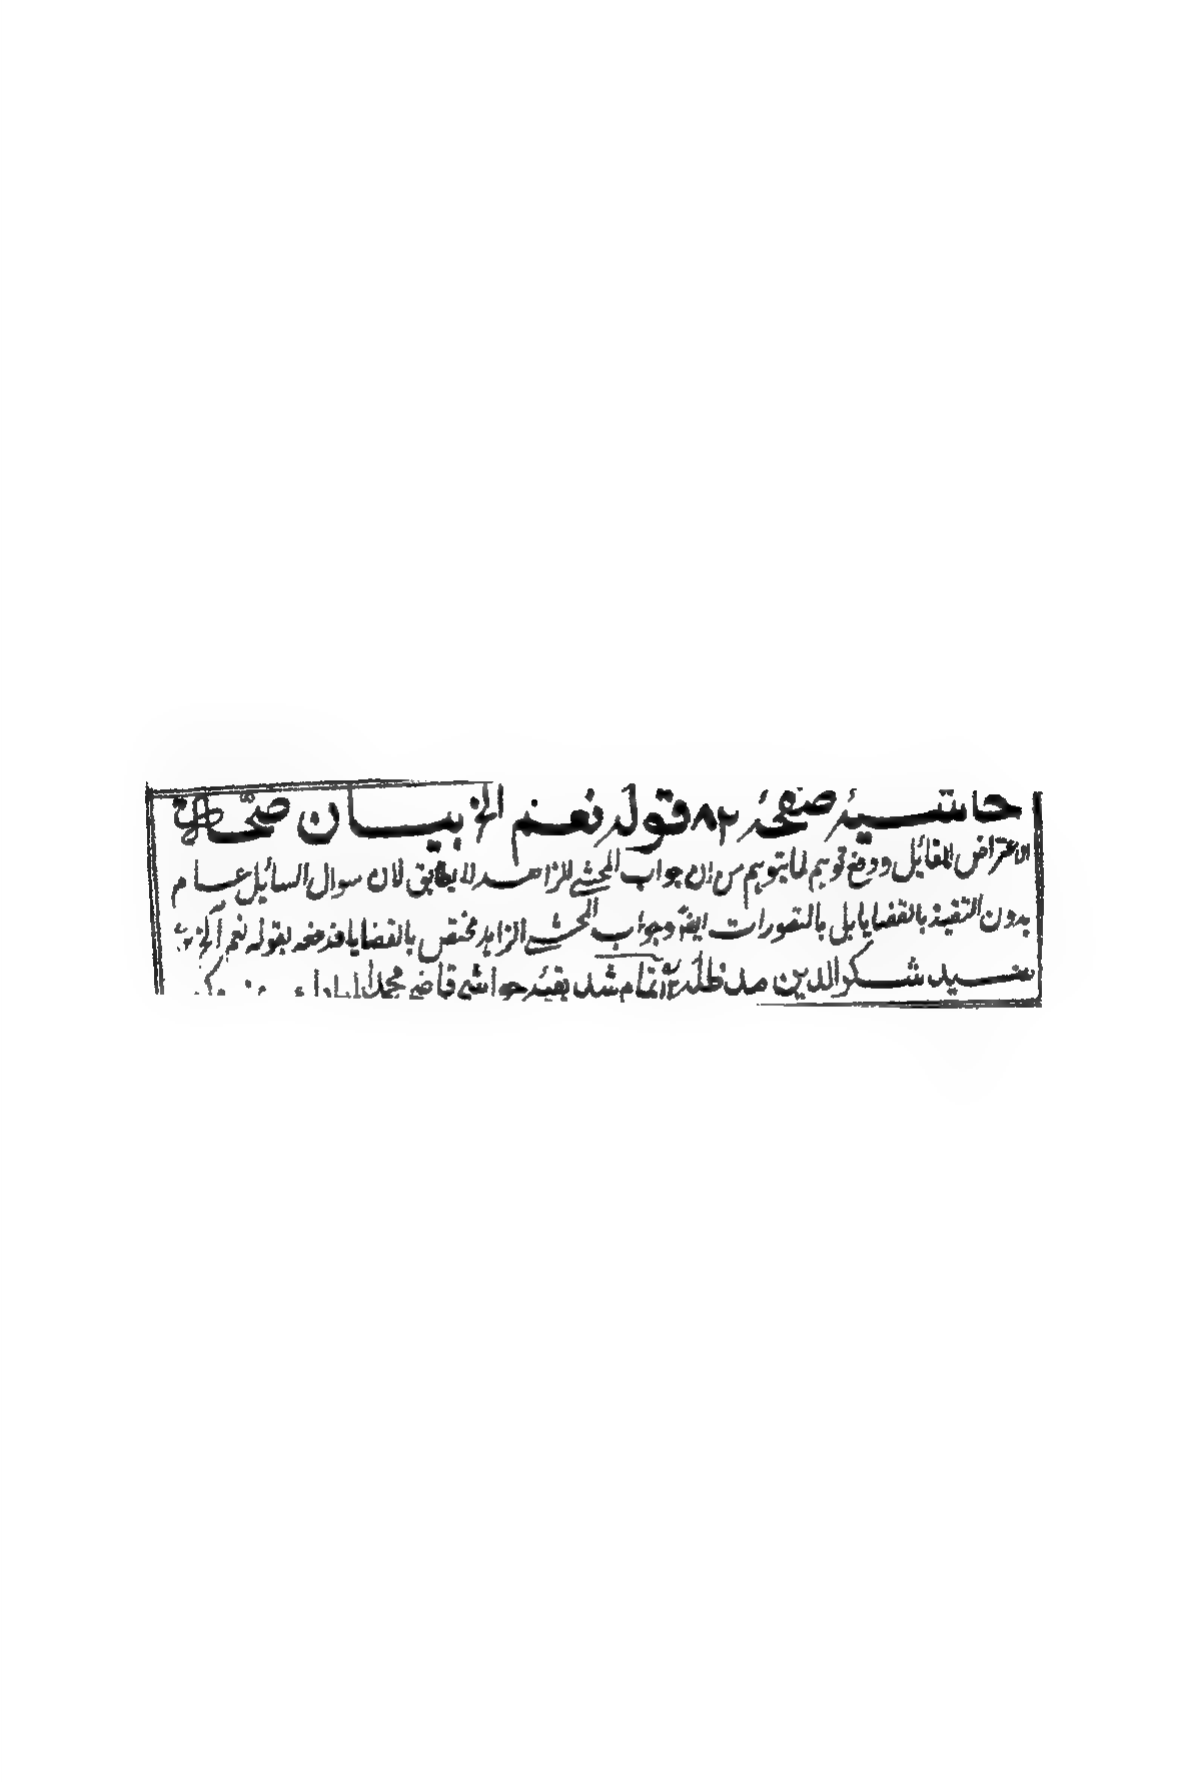 حاشیۂ صفحۂ ۸۲ قولہ نعم الخ بیان صحۃ
الاعتراض للقائل ودفع توہم لما یتوہم من ان جواب المحشے الزاہد لا یطابق لان سوال السائل عام
بدون التقیید بالقضایا بل بالتصورات ایضا وجواب المحشے الزاہد مختص بالقضایا فدفعہ بقولہ نعم الخ ۱۲
سید شکر الدین مد ظلہ ۱۲ تمام شد بقیۂ حواشی قاضی محمد